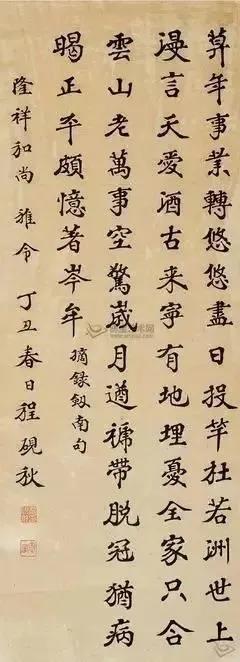 莫年事業轉悠悠盡日投竿杜若洲世上
漫言天愛酒古来寧有地埋憂全家只合
雲山老萬事空驚歲月遒褫帶脫冠猶病
暍正平頗憶著岑牟 摘録劔南句
隆祥和尚 雅令 丁丑春日程硯秋